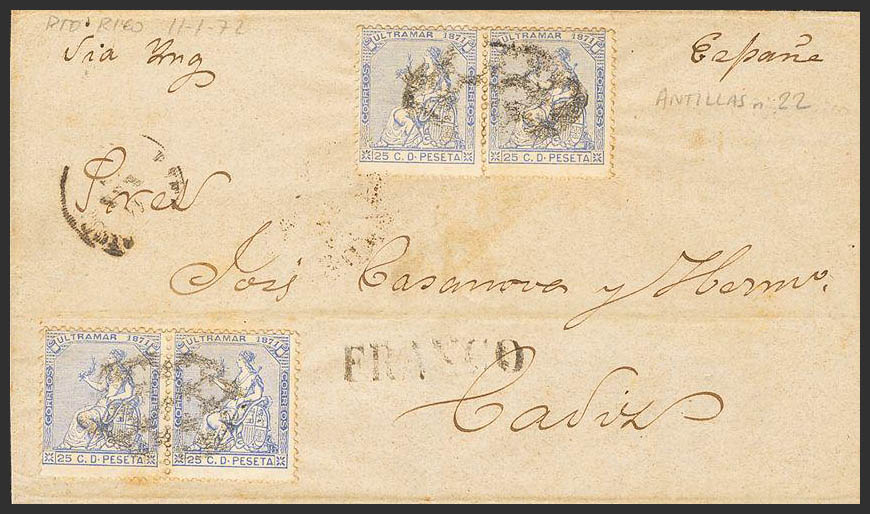 PTO RICO 11-1-72
Via Yng
España
ANTILLAS nº 22
ULTRAMAR 1871
CORREOS
CORREOS
25 C. D. PESETA
ULTRAMAR 1871
CORREOS
CORREOS
25 C. D. PESETA
José Casanova y Hermº.
FRANCO
Cadiz
ULTRAMAR 1871
CORREOS
CORREOS
25 C. D. PESETA
ULTRAMAR 1871
CORREOS
CORREOS
25 C. D. PESETA